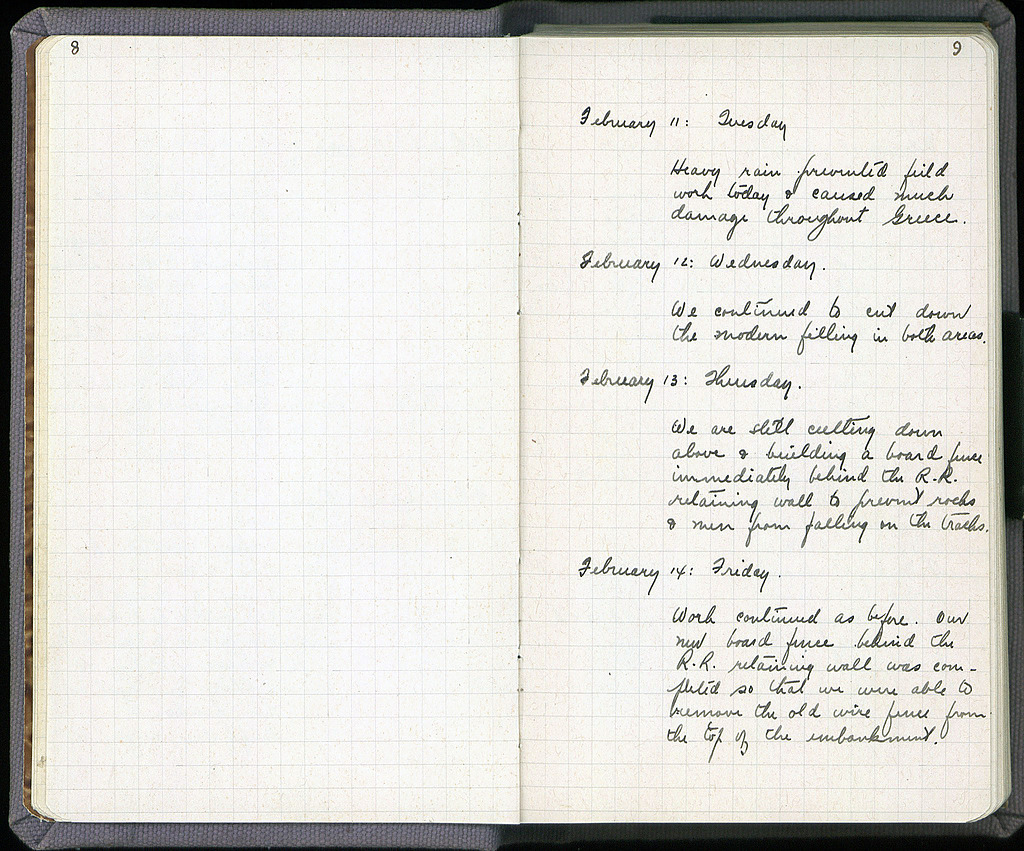 8
9
February 11: Tuesday
Heavy rain prevented field
work today & caused much
damage throughout Greece.
February 12: Wednesday.
We continued to cut down
the modern filling in both areas.
February 13: Thursday.
We are still cutting down
above & building a board fence
immediately behind the R.R.
retaining wall to prevent rocks
& men from falling on the tracks.
February 14: Friday.
Work continued as before. Our
new board fence behind the
R.R. retaining wall was com-
pleted so that we were able to
remove the old wire fence from
the top of the embankment.